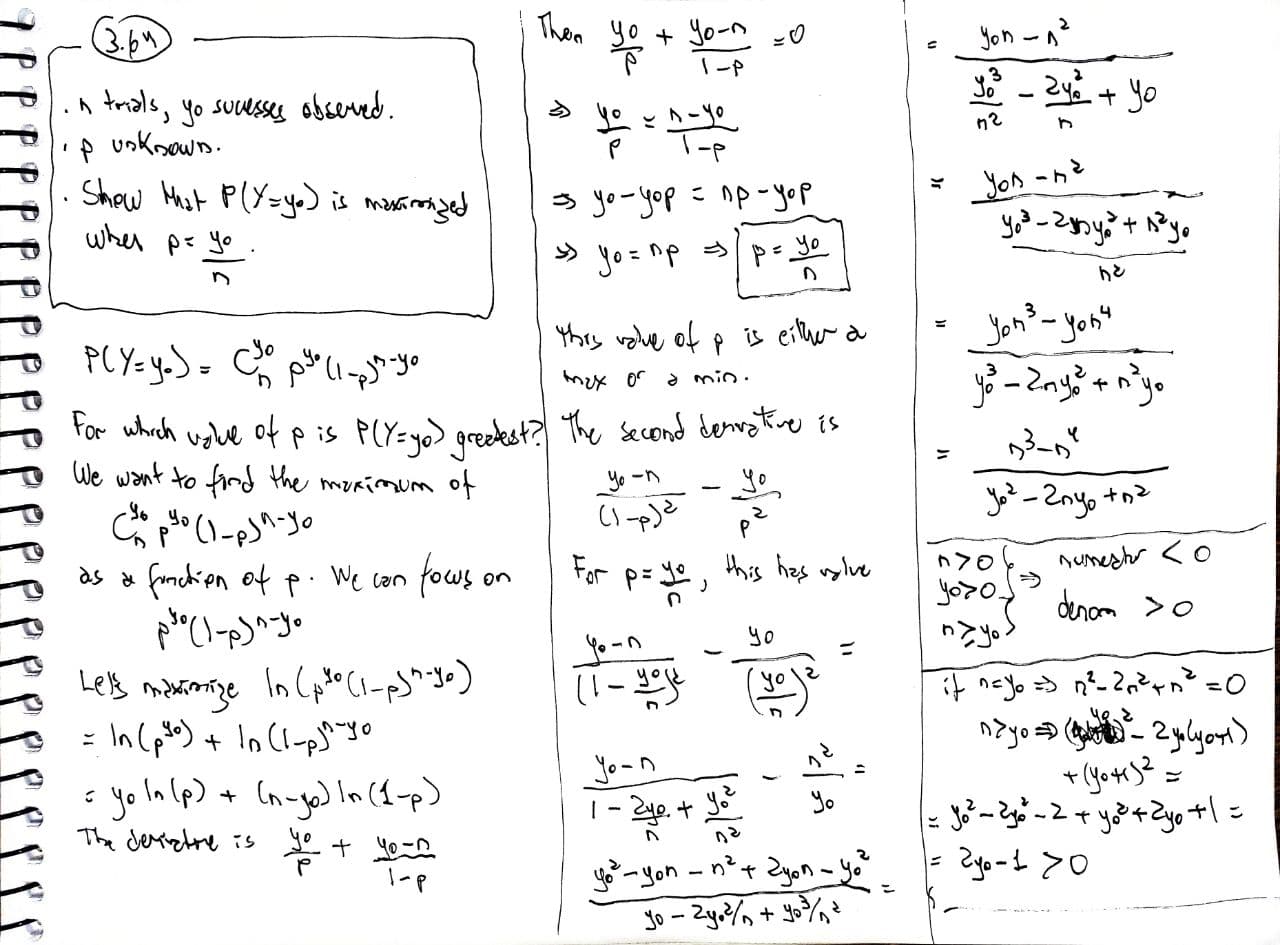 3.64
. n trials, y₀ sucesses observed.
. p unknown.
. Show that P(Y=y₀) is maximized
when p = y₀/n.
P(Y=y₀) = C_n^{y₀} p^{y₀} (1-p)^{n-y₀}
For which value of p is P(Y=y₀) greatest?
We want to find the maximum of
C_n^{y₀} p^{y₀} (1-p)^{n-y₀}
as a function of p. We can focus on
p^{y₀} (1-p)^{n-y₀}
Let's maximize ln(p^{y₀} (1-p)^{n-y₀})
= ln(p^{y₀}) + ln(1-p)^{n-y₀}
= y₀ ln(p) + (n-y₀) ln(1-p)
The derivative is y₀/p + (y₀-n)/(1-p)
Then y₀/p + (y₀-n)/(1-p) = 0
⇒ y₀/p = (n-y₀)/(1-p)
⇒ y₀ - y₀p = np - y₀p
⇒ y₀ = np ⇒ p = y₀/n
This value of p is either a
max or a min.
The second derivative is
(y₀-n)/(1-p)² - y₀/p²
For p = y₀/n, this has value
(y₀-n)/(1 - y₀/n)² - y₀/(y₀/n)² =
(y₀-n)/(1 - 2y₀/n + y₀²/n²) - n²/y₀ =
(y₀² - y₀n - n² + 2y₀n - y₀²)/(y₀ - 2y₀²/n + y₀³/n²) =
= (y₀n - n²)/(y₀³/n² - 2y₀²/n + y₀)
= (y₀n - n²)/((y₀³ - 2ny₀² + n²y₀)/n²)
= (y₀n³ - y₀n⁴)/(y₀³ - 2ny₀² + n²y₀)
= (n³ - n⁴)/(y₀² - 2ny₀ + n²)
n>0
y₀>0
n≥y₀
⇒ numestr < 0
denom > 0
if n=y₀ ⇒ n² - 2n² + n² = 0
n>y₀ ⇒ y₀² - 2y₀(y₀+1)
+ (y₀+1)² =
= y₀² - 2y₀² - 2 + y₀² + 2y₀ + 1 =
= 2y₀ - 1 > 0